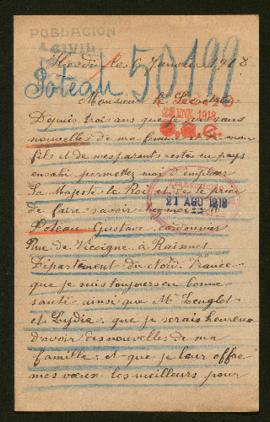 POBLACION
CIVIL
Poteau 50199
le 6 Janvier 1918
Monsieur le Secrétaire
28 ENE. 1918
Depuis trois ans que je suis sans
nouvelles de ma femme et de mon
fils et de mes parents restés en pays
envahi permettez moi d'implorer
Sa Majesté le Roi et de le prier
de faire savoir
21 AGO 1918
Poteau Gustave cordonnier
Rue de Vicoigne à Raismes
Département du Nord France
que je suis toujours en bonne
santé ainsi que Mr Tenglot
et Lydie, que je serais heureux
d'avoir des nouvelles de ma
famille, et que je leur offre
mes vœux les meilleurs pour